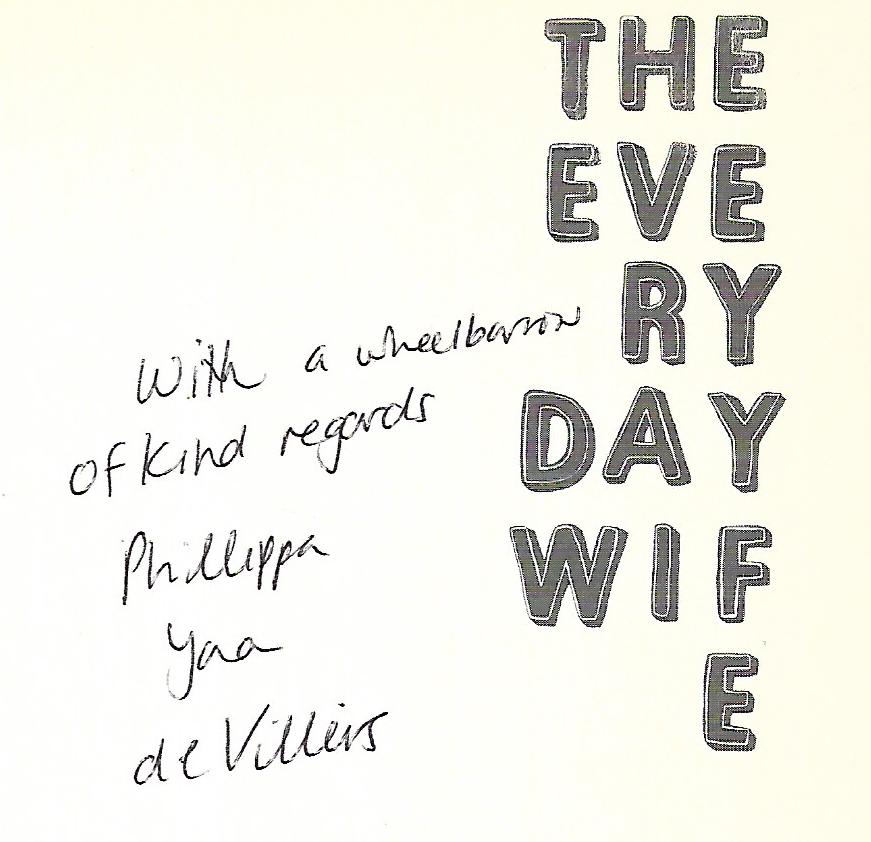 THE
EVE
RY
DAY
WIF
E
With a wheelbarrow
of kind regards
Phillippa
Yaa
de Villiers